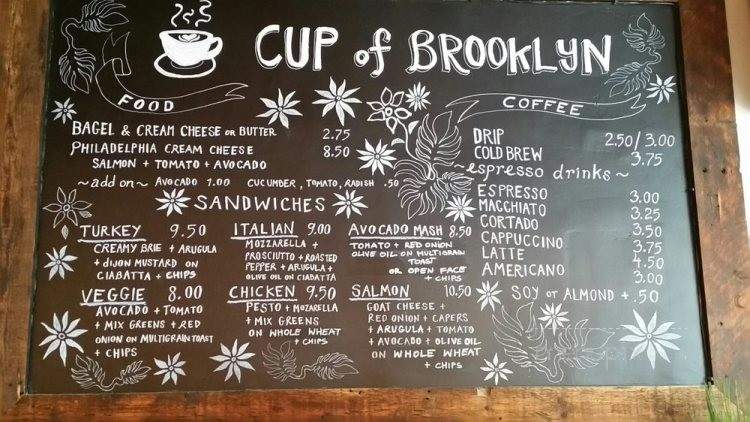 CUP of BROOKLYN
FOOD
BAGEL & CREAM CHEESE OR BUTTER 2.75
PHILADELPHIA CREAM CHEESE 8.50
SALMON + TOMATO + AVOCADO
~add on~ AVOCADO 1.00 CUCUMBER, TOMATO, RADISH .50
SANDWICHES
TURKEY 9.50
CREAMY BRIE + ARUGULA
+ DIJON MUSTARD ON
CIABATTA + CHIPS
ITALIAN 9.00
MOZZARELLA +
PROSCIUTTO + ROASTED
PEPPER + ARUGULA +
OLIVE OIL ON CIABATTA
AVOCADO MASH 8.50
TOMATO + RED ONION
OLIVE OIL ON MULTIGRAIN
TOAST
OR OPEN FACE
+ CHIPS
VEGGIE 8.00
AVOCADO + TOMATO
+ MIX GREENS + RED
ONION ON MULTIGRAIN TOAST
+ CHIPS
CHICKEN 9.50
PESTO + MOZARELLA
+ MIX GREENS
ON WHOLE WHEAT
+ CHIPS
SALMON 10.50
GOAT CHEESE +
RED ONION + CAPERS
+ ARUGULA + TOMATO
+ AVOCADO + OLIVE OIL
ON WHOLE WHEAT
+ CHIPS
COFFEE
DRIP 2.50/3.00
COLD BREW 3.75
~espresso drinks~
ESPRESSO 3.00
MACCHIATO 3.25
CORTADO 3.50
CAPPUCCINO 3.75
LATTE 4.50
AMERICANO 3.00
SOY or ALMOND + .50